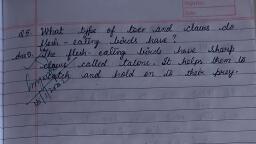 Q.5. What type of toer and claws do
flesh-eating birds have?
Ans. The flesh-eating birds have sharp
claws called talons. It helps them to
catch and hold on to their prey.